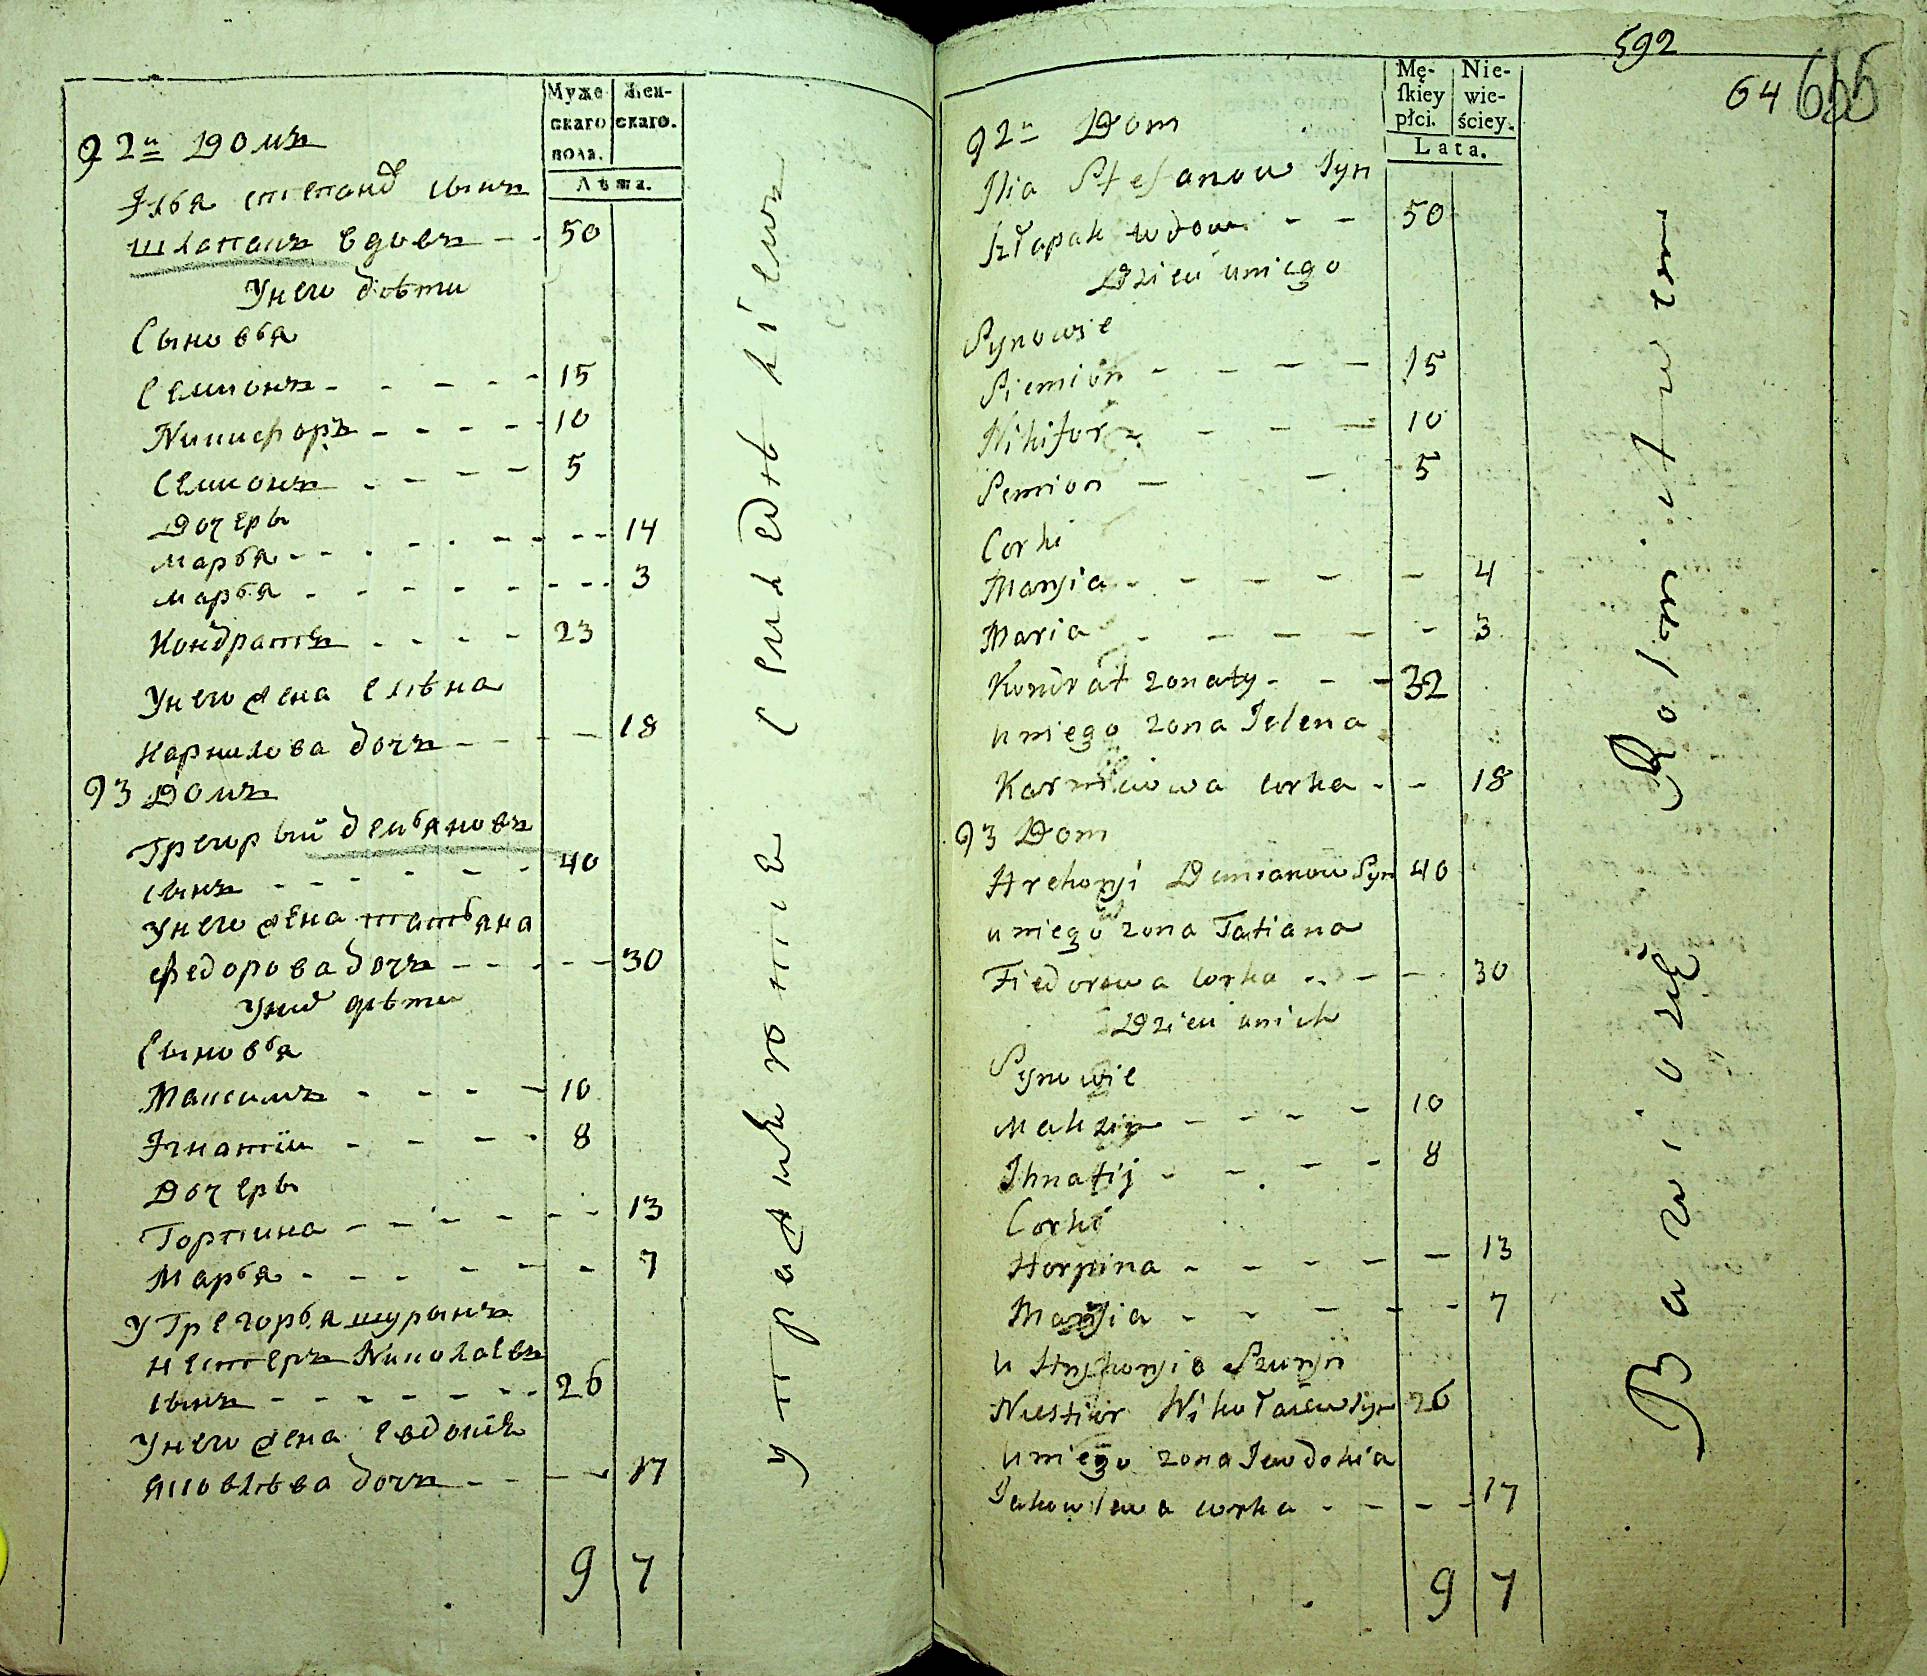 Муже
скаго
пола.
Жен-
скаго.
Лѣта.
92й Домъ
Илья степанов сынъ
шлапакъ вдовъ - - 50
У него дѣти
Сыновья
Семионъ - - - - - 15
Никифоръ - - - - - 10
Семионъ - - - - 5
Дочеры
марья - - - - - - - - 14
марья - - - - - - - - 3
Кондратъ - - - - 23
У него жена елѣна
карнилова дочъ - - - - 18
93 Домъ
Грегорый демьяновъ
сынъ - - - - - - 40
У него жена татьяна
федорова дочъ - - - - - 30
У них дѣти
Сыновья
Максимъ - - - - 10
Игнатіи - - - - 8
Дочеры
Горпина - - - - - - - 13
Марья - - - - - - 7
У Грегорья шурынъ
нестеръ Николаевъ
сынъ - - - - - - - 26
У него жена евдокія
яковлѣва дочъ - - - - 17
9 7
у праждне ютіе Сим едѣ ніемъ
592
64
Mę-
ſkiey
płci.
Nie-
wie-
ściey.
Lata.
92й Dom
Ilia Stefanow Syn
Szłapak wdow. - - 50
Dzieci u niego
Synowie
Siemion - - - - 15
Nikifor - - - 10
Semion - - 5
Corki
Maryia - - - - - 4
Maria - - - - - 3
Kondrat zonaty - - - 32
u niego zona Jelena
Karniłowa corka - - 18
93 Dom
Hrehoryi Demianow Syn 40
u niego zona Tatiana
Fiedorowa corka - - - 30
Dzieci u nich
Synowie
Makzim - - - - 10
Ihnatij - - - - 8
Corki
Horpina - - - - - 13
Maryia - - - - - 7
u Hryhoryia Szuryn
Niestior Nikołaiew Syn 26
u niego zona Jewdokia
Jakowlewa corka - - - - 17
9 7